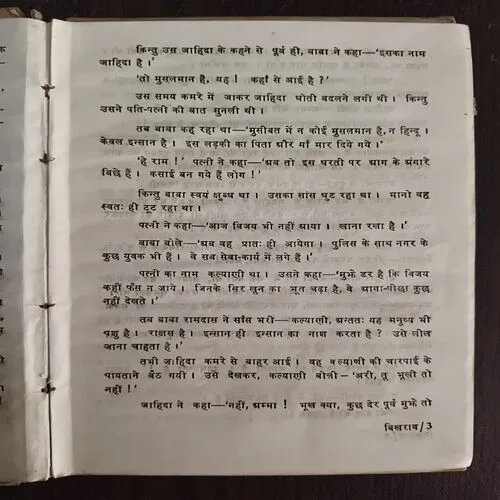 किन्तु उस जाहिदा के कहने से पूर्व ही, बाबा ने कहा—'इसका नाम
जाहिदा है ।'
'तो मुसलमान है, यह ! कहाँ से आई है ?'
उस समय कमरे में जाकर जाहिदा धोती बदलने लगी थी । किन्तु
उसने पति-पत्नी की बात सुनली थी ।
तब बाबा कह रहा था—'मुसीबत में न कोई मुसलमान है, न हिन्दू ।
केवल इन्सान है । इस लड़की का पिता और माँ मार दिये गये ।'
'हे राम !' पत्नी ने कहा—'अब तो इस धरती पर आग के अंगारे
बिछे हैं । कसाई बन गये हैं लोग !'
किन्तु बाबा स्वयं क्षुब्ध था । उसका सांस घुट रहा था । मानो वह
स्वतः ही टूट रहा था ।
पत्नी ने कहा—'आज विजय भी नहीं आया । खाना रखा है ।'
बाबा बोले—'अब वह प्रातः ही आयेगा । पुलिस के साथ नगर के
कुछ युवक भी हैं । वे सब सेवा-कार्य में लगे हैं ।'
पत्नी का नाम कल्याणी था । उसने कहा—'मुझे डर है कि विजय
कहीं फँस न जाये । जिनके सिर खून का भूत चढ़ा है, वे आगा-पीछा कुछ
नहीं देखते ।'
तब बाबा रामदास ने साँस भरी—'कल्याणी, अन्ततः यह मनुष्य भी
पशु है । राक्षस है । इन्सान ही इन्सान का नाश करता है ? उसे लील
जाना चाहता है ।'
तभी जाहिदा कमरे से बाहर आई । वह कल्याणी की चारपाई के
पायताने बैठ गयी । उसे देखकर, कल्याणी बोली—'अरी, तू भूखी तो
नहीं !'
जाहिदा ने कहा—'नहीं, अम्मा ! भूख क्या, कुछ देर पूर्व मुझे तो
बिखराव/3